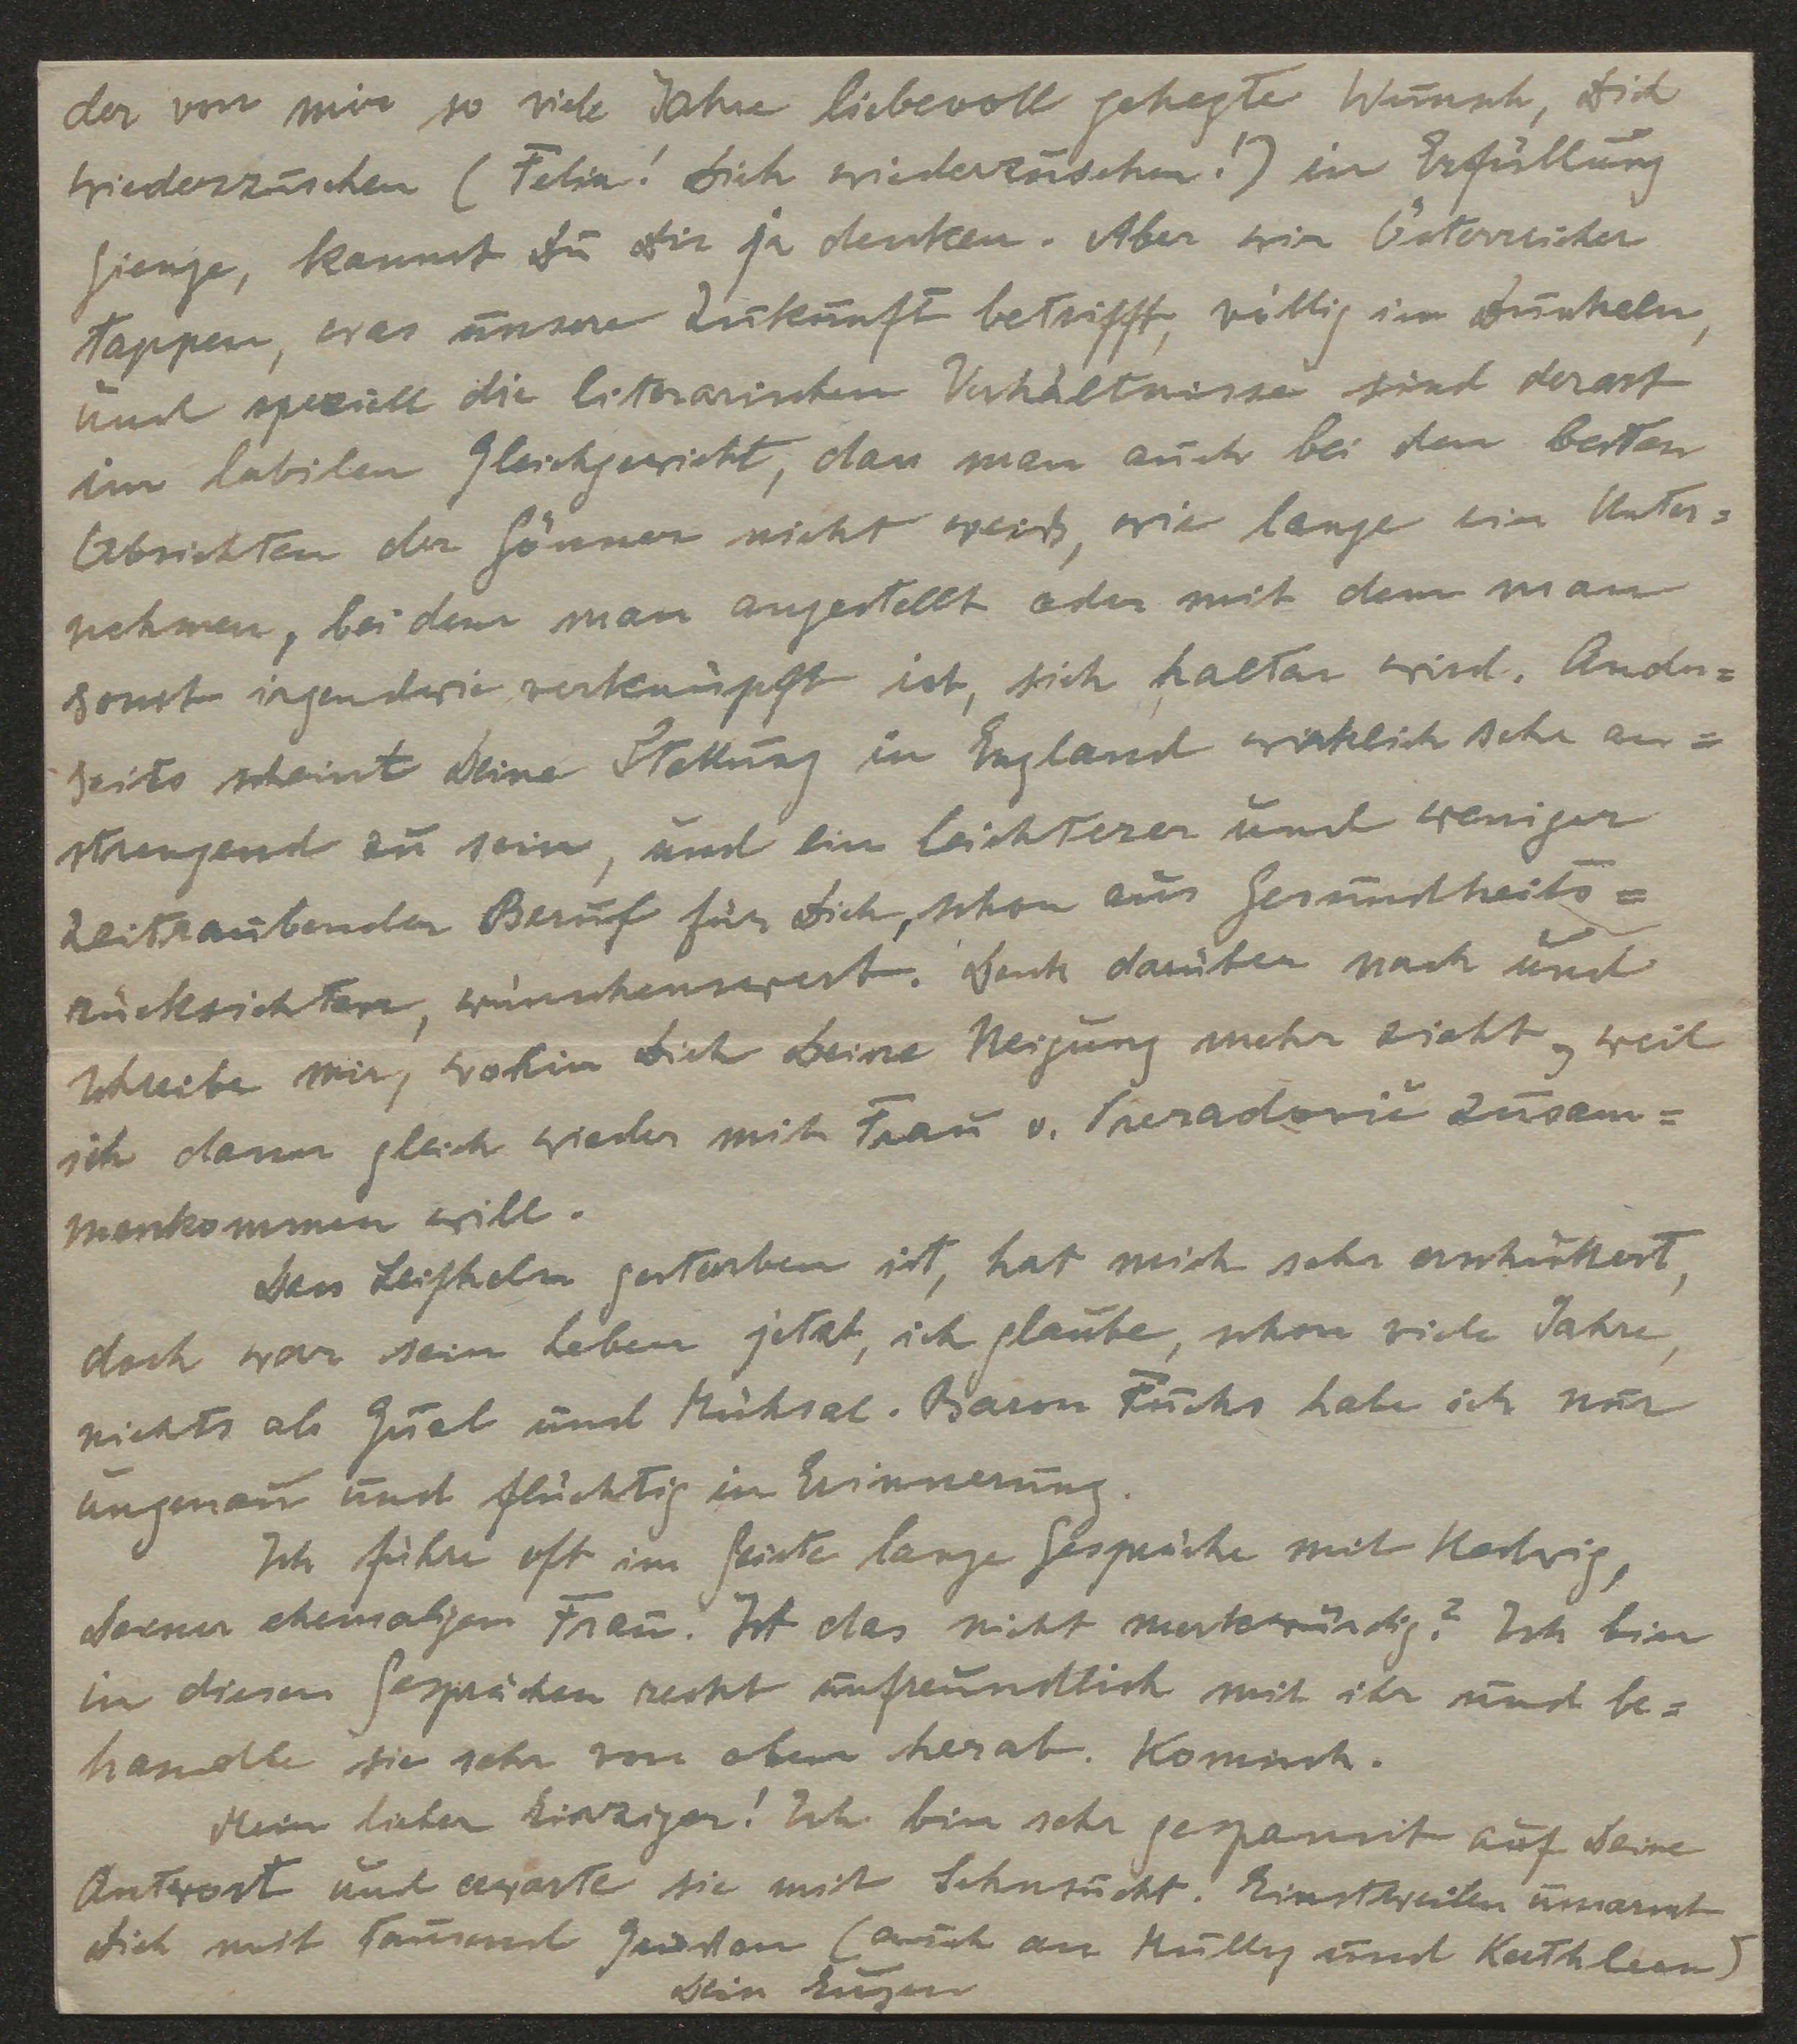 der von mir so viele Jahre liebevoll gehegte Wunsch, Dich
wiederzusehen (Felix! Dich wiederzusehen!) in Erfüllung
gienge, kannst Du Dir ja denken. Aber wir Österreicher
tappen, was unsere Zukunft betrifft, völlig im Dunkeln,
und speziell die literarischen Verhältnisse sind derart
im labilen Gleichgewicht, dass man auch bei den besten
Absichten der Gönner nicht weiß, wie lange ein Unter=
nehmen, bei dem man angestellt oder mit dem man
sonst irgendwie verknüpft ist, sich halten wird. Ander=
seits scheint Deine Stellung in England wirklich sehr an=
strengend zu sein, und ein leichterer und weniger
zeitraubender Beruf für Dich, schon aus Gesundheits=
rücksichten, wünschenswert. Denk darüber nach und
schreibe mir, wohin Dich Deine Neigung mehr zieht, weil
ich dann gleich wieder mit Frau v. Preradović zusam=
menkommen will.
Dass Leifhelm gestorben ist, hat mich sehr erschüttert,
doch war sein Leben jetzt, ich glaube, schon viele Jahre,
nichts als Qual und Mühsal. Baron Fuchs habe ich nur
ungenau und flüchtig in Erinnerung.
Ich führe oft im Geiste lange Gespräche mit Hedwig,
Deiner ehemaligen Frau. Ist das nicht merkwürdig? Ich bin
in diesen Gesprächen recht unfreundlich mit ihr und be=
handle sie sehr von oben herab. Komisch.
Mein lieber Einziger! Ich bin sehr gespannt auf Deine
Antwort und erwarte sie mit Sehnsucht. Einstweilen umarmt
Dich mit tausend Grüssen (auch an Mully und Kathleen)
Dein Eugen